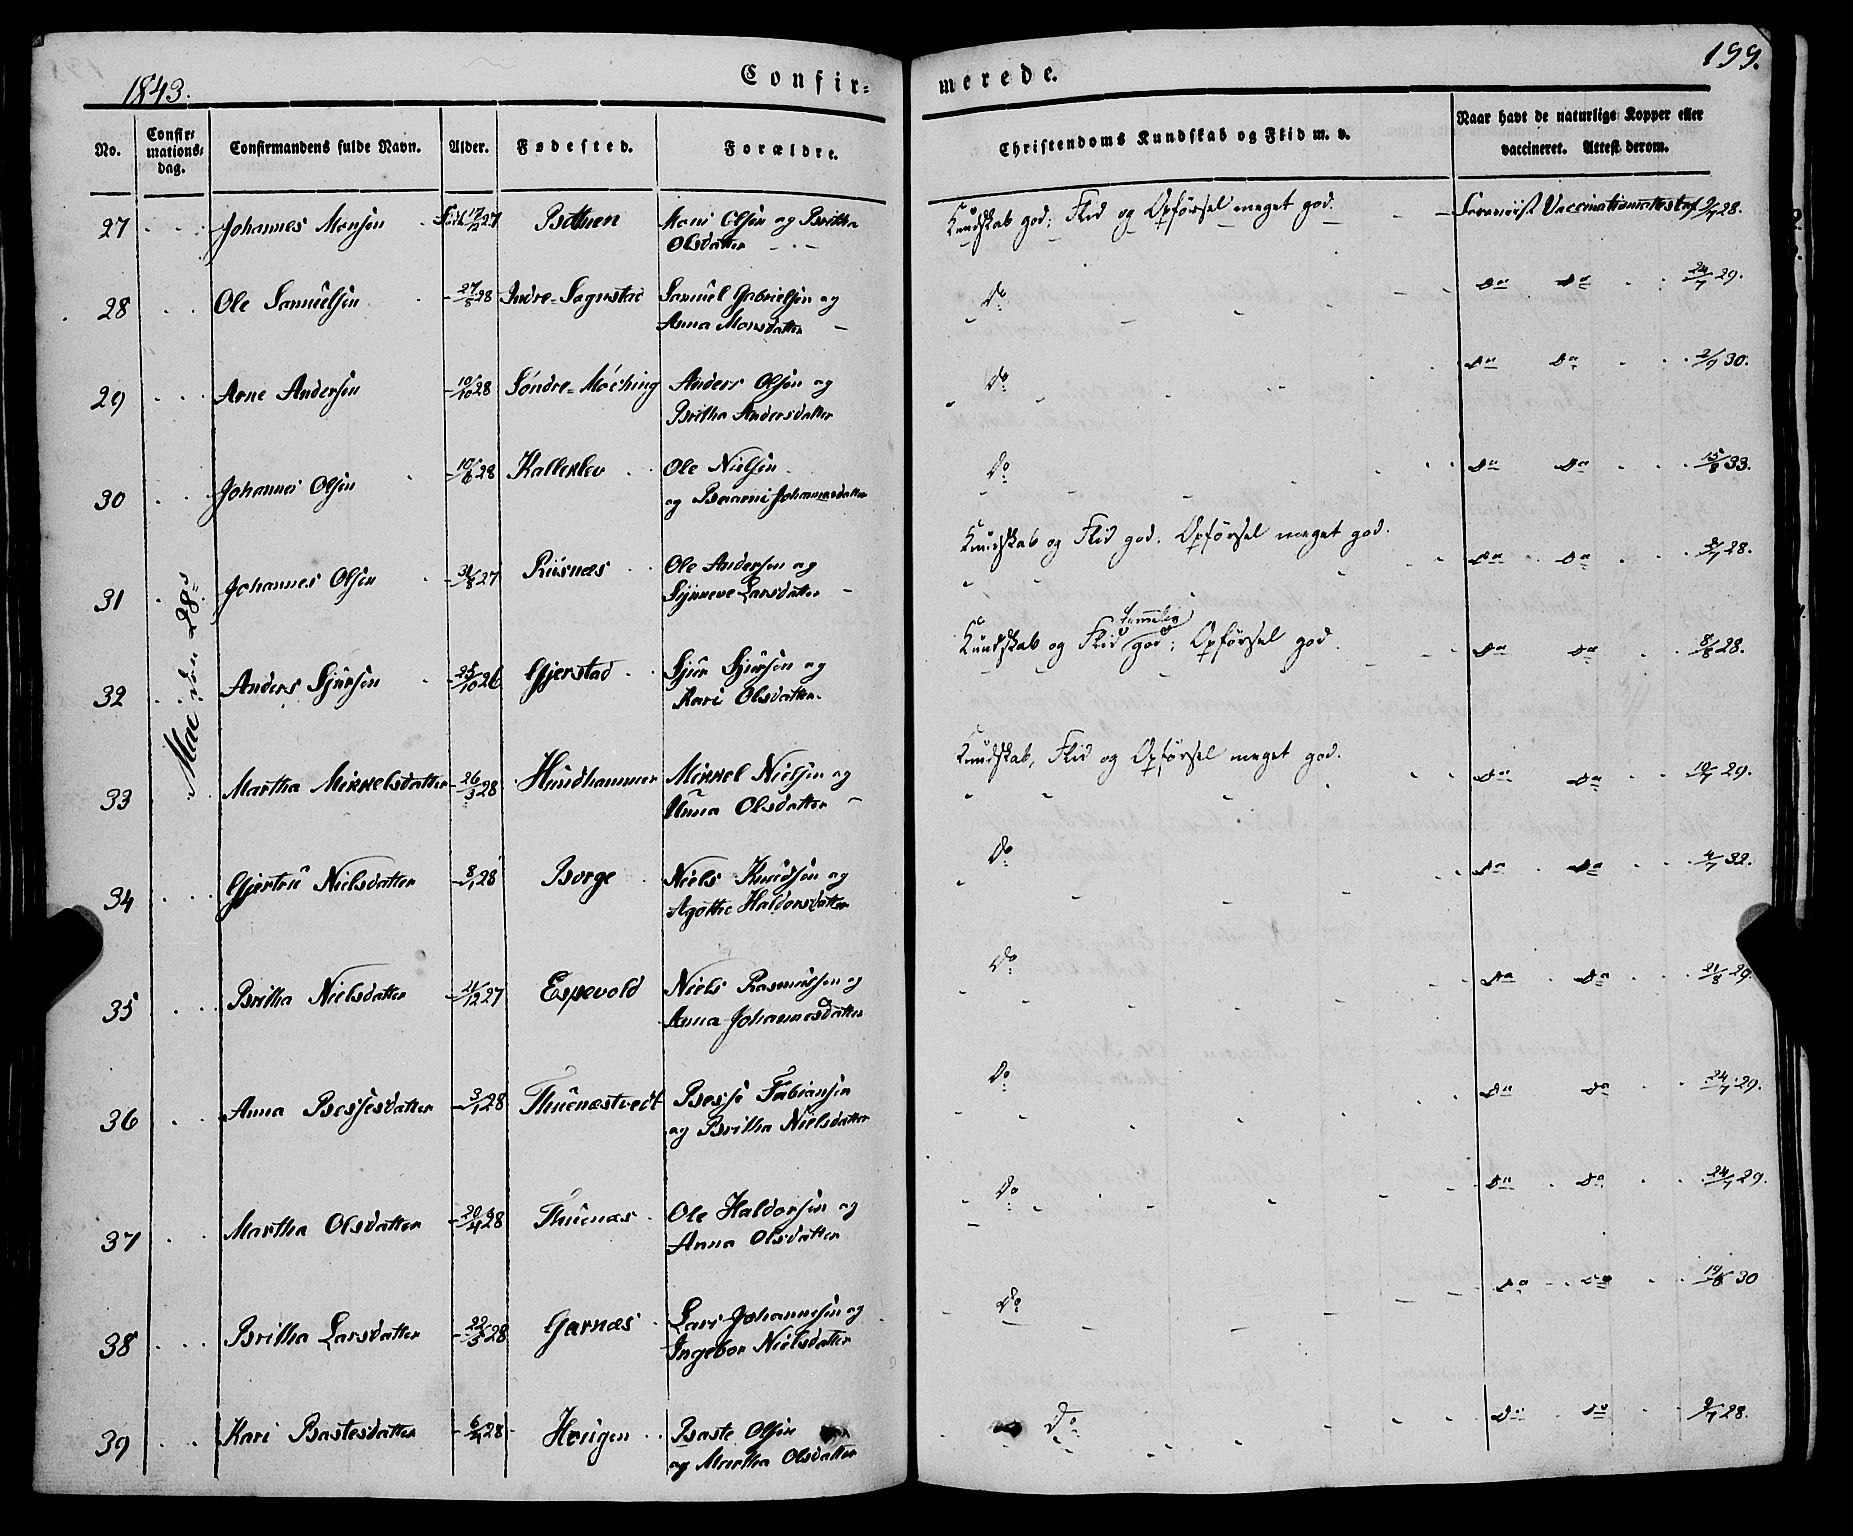 1843.
Confir=
merede.
199.
No.
Confir=
mations=
dag.
Confirmandens fulde Navn.
Alder.
Fødested.
Forældre.
Christendoms Kundskab og Flid m. v.
Naar havt de naturlige Kopper eller
vaccineret. Attest derom.
Mai den 28de
27 Johannes Monsen 17/12 27 Bothnen Mons Olsen og Britha
Olsdatter
Kundskab god; Flid og Opførsel meget god. Foreviist Vaccinationsattest af 9/7 28.
28 Ole Samuelsen 27/8 28 Indre=Sagnstad Samuel Gabrielsen og
Anna Monsdatter
Do Do Do 24/7 29.
29 Arne Andersen 10/10 28 Søndre=Møching Anders Olsen og
Britha Andersdatter
Do Do Do 2/9 30.
30 Johannes Olsen 10/6 28 Kalleklev Ole Nielsen
og Baarni Johannesdatter
Do Do Do 15/8 33.
31 Johannes Olsen 31/8 27 Riisnæs Ole Andersen og
Synneve Larsdatter
Kundskab og Flid god; Opførsel meget god. Do Do 28.
32 Anders Sjursen 25/10 26 Gjerstad Sjur Sjursen og
Kari Olsdatter.
temmelig
Kundskab og Flid god; Opførsel god. Do Do 8/8 28.
33 Martha Mikkelsdatter 26/3 28 Hundhammer Mikkel Nielsen og
Unna Olsdatter
Kundskab, Flid og Opførsel meget god. Do Do 10/7 29.
34 Gjertru Nielsdatter 8/1 28 Borge Niels Knudsen og
Agothe Haldorsdatter
Do Do Do 4/7 32.
35 Britha Nielsdatter 21/12 27 Espevold Niels Rasmussen og
Anna Johannesdatter
Do Do Do 21/8 29.
36 Anna Bessesdatter 3/1 28 Thuenæstvedt Besse Fabiansen
og Britha Nielsdatter
Do Do Do 24/7 29.
37 Martha Olsdatter 20/4 28 Thuenæs Ole Haldorsen og
Anna Olsdatter
Do Do Do 24/7 29.
38 Britha Larsdatter 22/3 28 Garnæs Lars Johannesen og
Ingebor Nielsdatter
Do Do Do 19/8 30
39 Kari Bastesdatter 6/4 28 Hougen Baste Olsen
og Martha Olsdatter
Do Do Do 9/7 28.